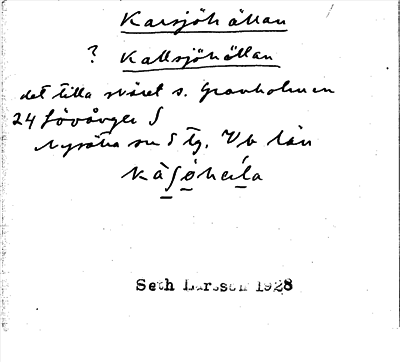 Karsjöhällan
? Kallsjöhällan
det lilla skäret s. Granholmen
24 Lövånger S
Nysätra sn o tg. Vb län
Seth Larsson 1928